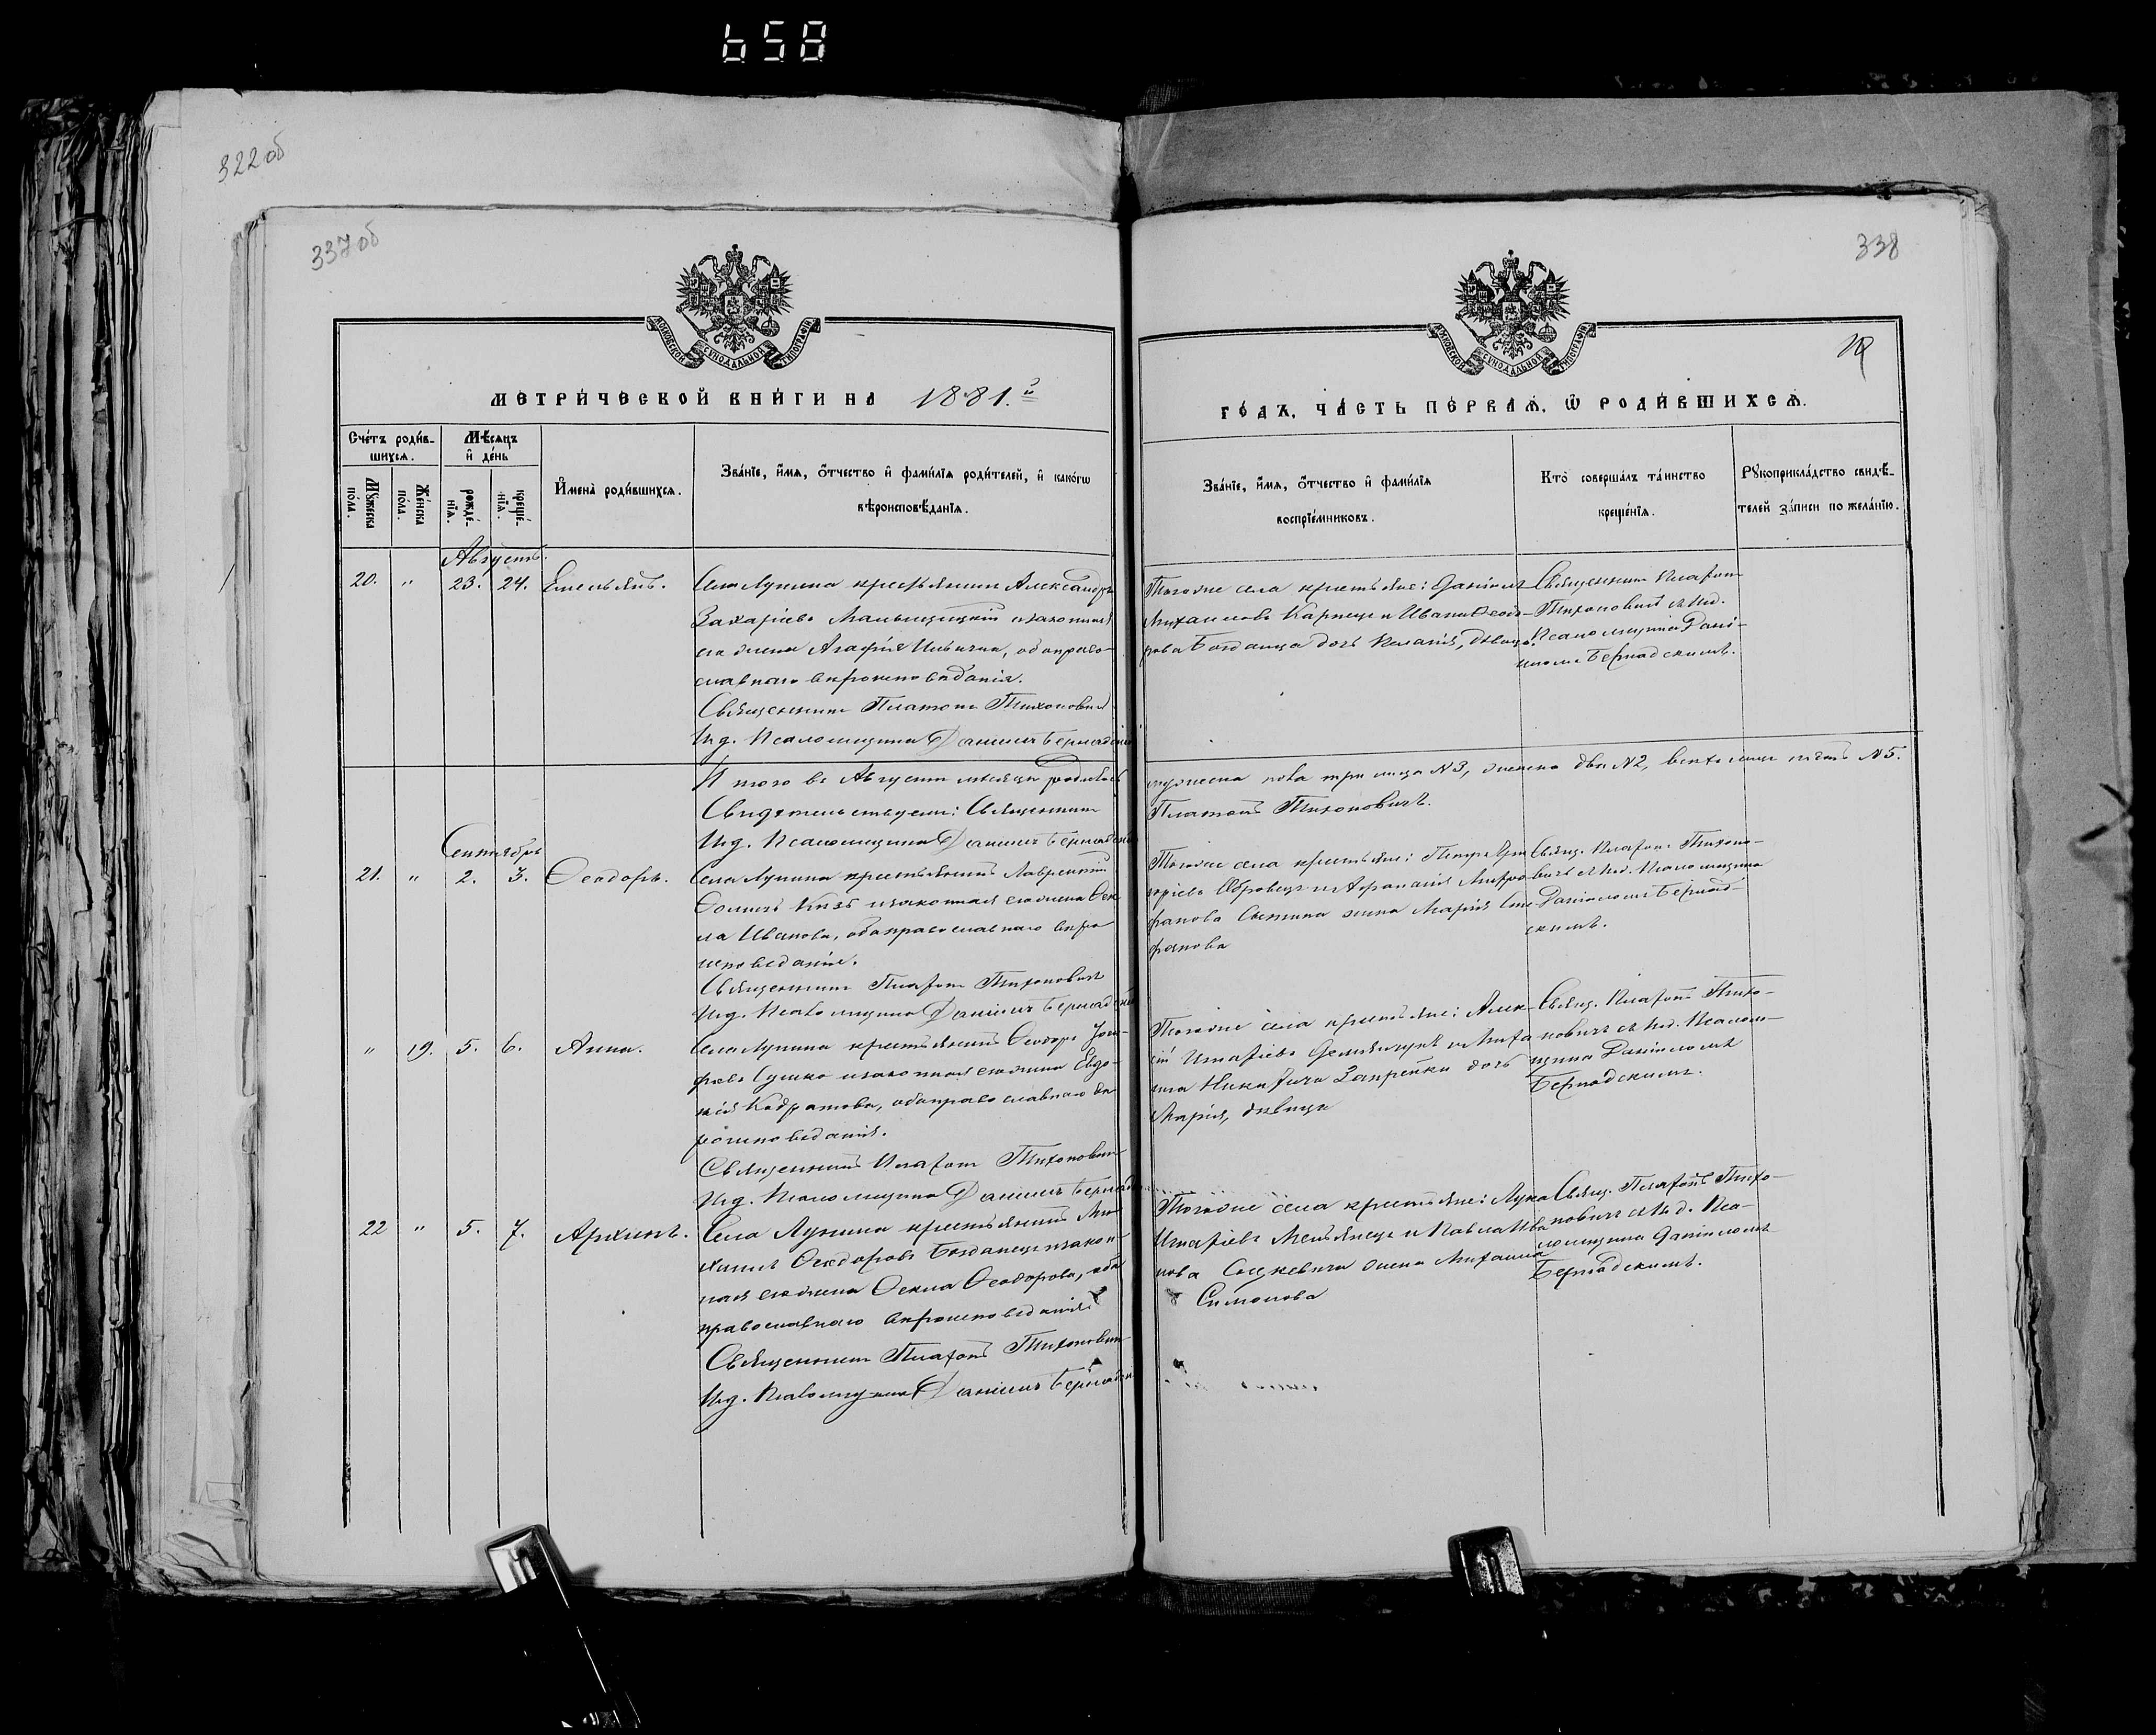 658
322 об
337 об
338
МОСКОВСКОЙ СѴНОДАЛЬНОЙ ТИПОГРАФІИ
МОСКОВСКОЙ СѴНОДАЛЬНОЙ ТИПОГРАФІИ
МЕТРИ́ЧЕСКОЙ КНИ́ГИ НА 1881.й
ГО́ДЪ, ЧА́СТЬ ПЕ́РВАѦ, Ѡ҆ РОДИ́ВШИХСѦ.
Сче́тъ роди́в-
шихсѧ.
Мѣ́сѧцъ
и҆ де́нь
Мꙋ́жеска по́ла.
Же́нска по́ла.
рожде́-
нїѧ.
креще́-
нїѧ.
И҆мена̀ роди́вшихсѧ.
Зва́нїе, и҆́мѧ, о҆́тчество и҆ фами́лїѧ роди́телей, и҆ како́гѡ
вѣроисповѣ́данїѧ.
Зва́нїе, и҆́мѧ, о҆́тчество и҆ фами́лїѧ
воспрїе́мниковъ.
Кто̀ соверша́лъ та́инство
креще́нїѧ.
Рꙋкоприкла́дство свидѣ́-
телей за́писи по жела́нїю.
Августъ.
20. " 23. 24. Емельянъ.
Села Лунина крестьянинъ Александръ
Захаріевъ и законная
его жена Агафія Ильична, оба право-
славнаго вѣроисповѣданія.
Священникъ Платонъ Тихоновичъ
И.д. Псаломщика Даніилъ Бернадскій
Тогоже села крестьяне: Даніилъ
Михаиловъ Карпецъ и Ивана Ѳеодо-
рова Богданца дочь Пелагія, дѣвица.
Священникъ Платонъ
Тихоновичъ съ И.д.
Псаломщика Дані-
иломъ Бернадскимъ.
Итого въ Августѣ мѣсяцѣ родилось
мужеска пола три лица №3, женска два №2, всѣхъ лицъ пять №5.
Свидѣтельствуемъ: Священникъ
Платонъ Тихоновичъ.
И.д. Псаломщика Даніилъ Бернадскій
Сентябрь
21. " 2. 3. Ѳеодоръ.
Села Лунина крестьянинъ Лаврентій
Ѳоминъ Князь и законная его жена Ѳек-
ла Иванова, оба православнаго вѣро-
исповѣданія.
Священникъ Платонъ Тихоновичъ
И.д. Псаломщика Даніилъ Бернадскій
Тогоже села крестьяне: Петръ Гри-
горіевъ и Афанасія Митро-
фанова жена Марія Сте-
фанова
Свящ. Платонъ Тихоно-
вичъ съ И.д. Псаломщика
Даніиломъ Бернад-
скимъ.
" 19. 5. 6. Анна.
Села Лунина крестьянинъ Ѳеодоръ
Сушко и законная его жена Евдо-
кія Кодратова, оба православнаго вѣ-
роисповѣданія.
Священникъ Платонъ Тихоновичъ
И.д. Псаломщика Даніилъ Бернадскій
Тогоже села крестьяне: Алек-
сѣй Игнатіевъ и Миха-
ила дочь
Марія, дѣвица
Свящ. Платонъ Тихо-
новичъ съ И.д. Псалом-
щика Даніиломъ
Бернадскимъ.
22 " 5. 7. Архипъ.
Села Лунина крестьянинъ Ми-
хаилъ Ѳеодоровъ Богданецъ и закон-
ная его жена Ѳекла Ѳеодорова, оба
православнаго вѣроисповѣданія.
Священникъ Платонъ Тихоновичъ
И.д. Псаломщика Даніилъ Бернадскій
Тогоже села крестьяне: Лука
Игнатіевъ и Павла Ива-
нова жена
Симонова
Свящ. Платонъ Тихо-
новичъ съ И.д. Пса-
ломщика Даніиломъ
Бернадскимъ.